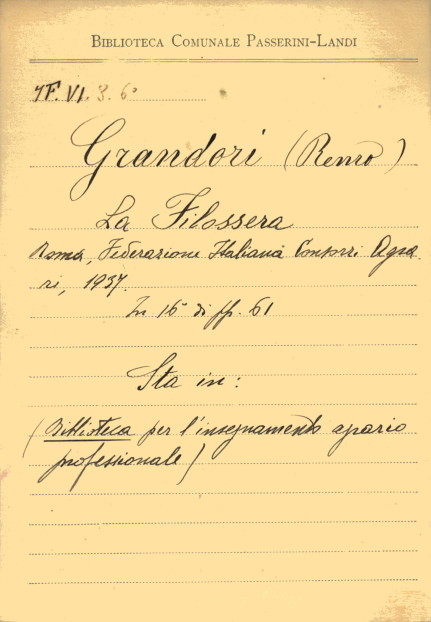 BIBLIOTECA COMUNALE PASSERINI-LANDI
7F. VI. 3. 6º
Grandori (Remo)
La Filossera
Roma, Federazione Italiana Consorzi Agra
ri, 1937.
In 16º di ff. 61
Sta in:
(Biblioteca per l'insegnamento agrario
professionale)